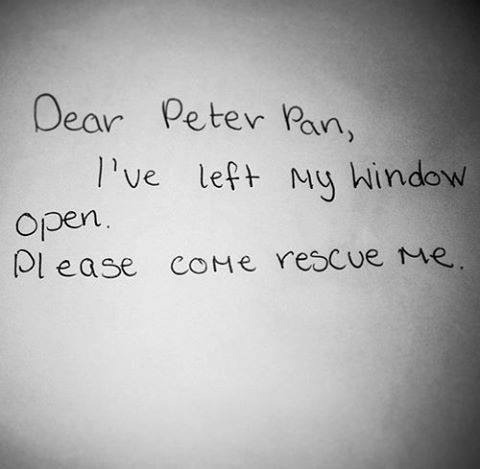 Dear Peter Pan,
I've left My Window
open.
Please come rescue Me.